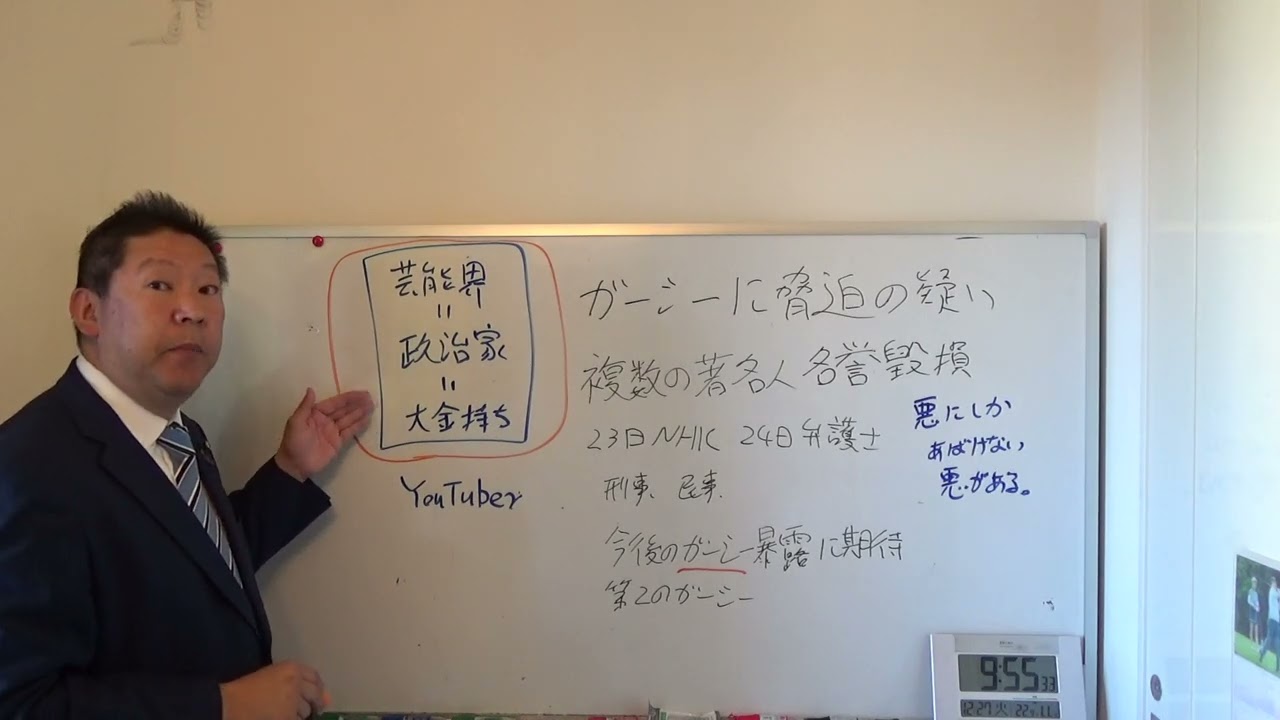 芸能界
〃
政治家
〃
大金持ち
YouTuber
ガーシーに脅迫の疑い
複数の著名人名誉毀損
23日NHK 24日弁護士
刑事 民事
今後のガーシー暴露に期待
第2のガーシー
悪にしか
あばけない
悪がある。
9:55 33
12:27 火 22